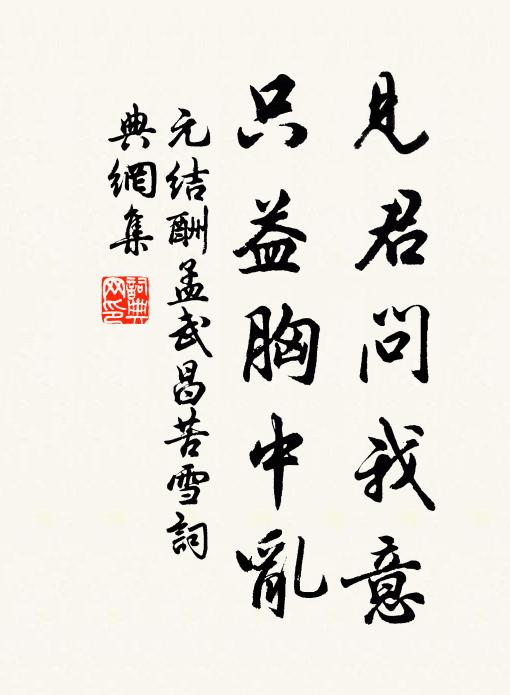 見君問我意
只益胸中亂
元結酬孟武昌苦雪詞
典網集
詞典網印